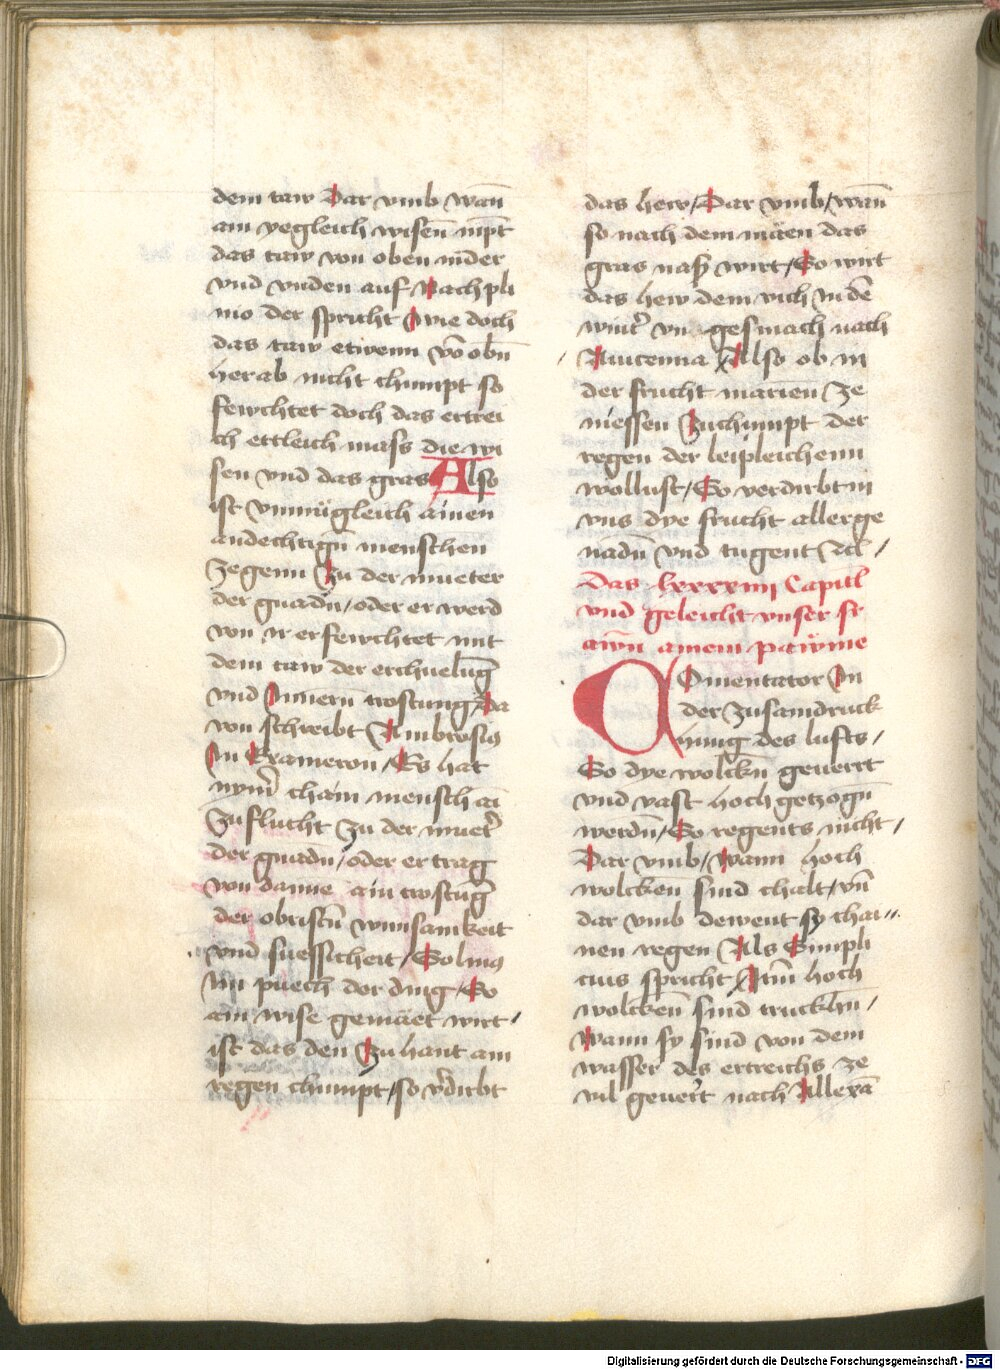 dem taw Dar vmb wan̄
ain yegleich wisen̄ nīpt
das taw von oben nid̄er
vnd vnden auf Nach pli
nio der spricht Wie doch
das taw etwenn vō obn̄
herab nicht chumpt so
fewchtet doch das ertrei
ch ettleich mass die wi
sen vnd das gras Also
ist vnmügleich ainen
andechtign̄ menschen
ze genn Zu der mueter
der gnadn̄ / oder er werd
von ir erfewchtet mit
dem taw der erchuelūg
vnd Innern̄ trostung Da
von schreibt Ambrosiꝰ
In Exameron / Es hat
nym̄ chain mensch ai
Zuflucht Zu der muet̄
der gnadn̄ / oder er trag
von danne ain trostūg
der obristn̄ wunsamkeit
vnd suessicheit / Solinꝰ
Im puech der ding / So
ain wise gemäet wirt /
ist das den Zu hant ain
regen chumpt / so v̄dirbt
das hew / Dar vmb / wan̄
so nach dem mäen das
gras nass wirt / So wirt
das hew dem vich In dē
wint̄ vn gesmach nach
Auicenna Also ob in
der frucht marien̄ ze
niessen Zuchumpt der
regen der leipleichenn
wollust / So verdirbt in
vns dye frucht aller ge
nadn̄ vnd tugent Acl̄ /
Das lxxxxiiii Capitl̄
vnd geleicht vnser fr
awn̄ ainem pawme
COmentator In
der zusamdruck
hnng des lufts /
So dye wolckn̄ geuerrt
vnd vast hoch getzogn̄
werdn̄ / So regents nicht /
Dar vmb / wann hoch
wolcken̄ sind chalt / vn̄
dar vmb dewent sy chai //
nen regen Als Simpli
cius spricht Item̄ hoch
wolcken̄ sind truckhn̄ /
Wann sy sind von dem
wasser des ertreichs ze
vil geuer̄t nach Allexā
Digitalisierung gefördert durch die Deutsche Forschungsgemeinschaft - DFG